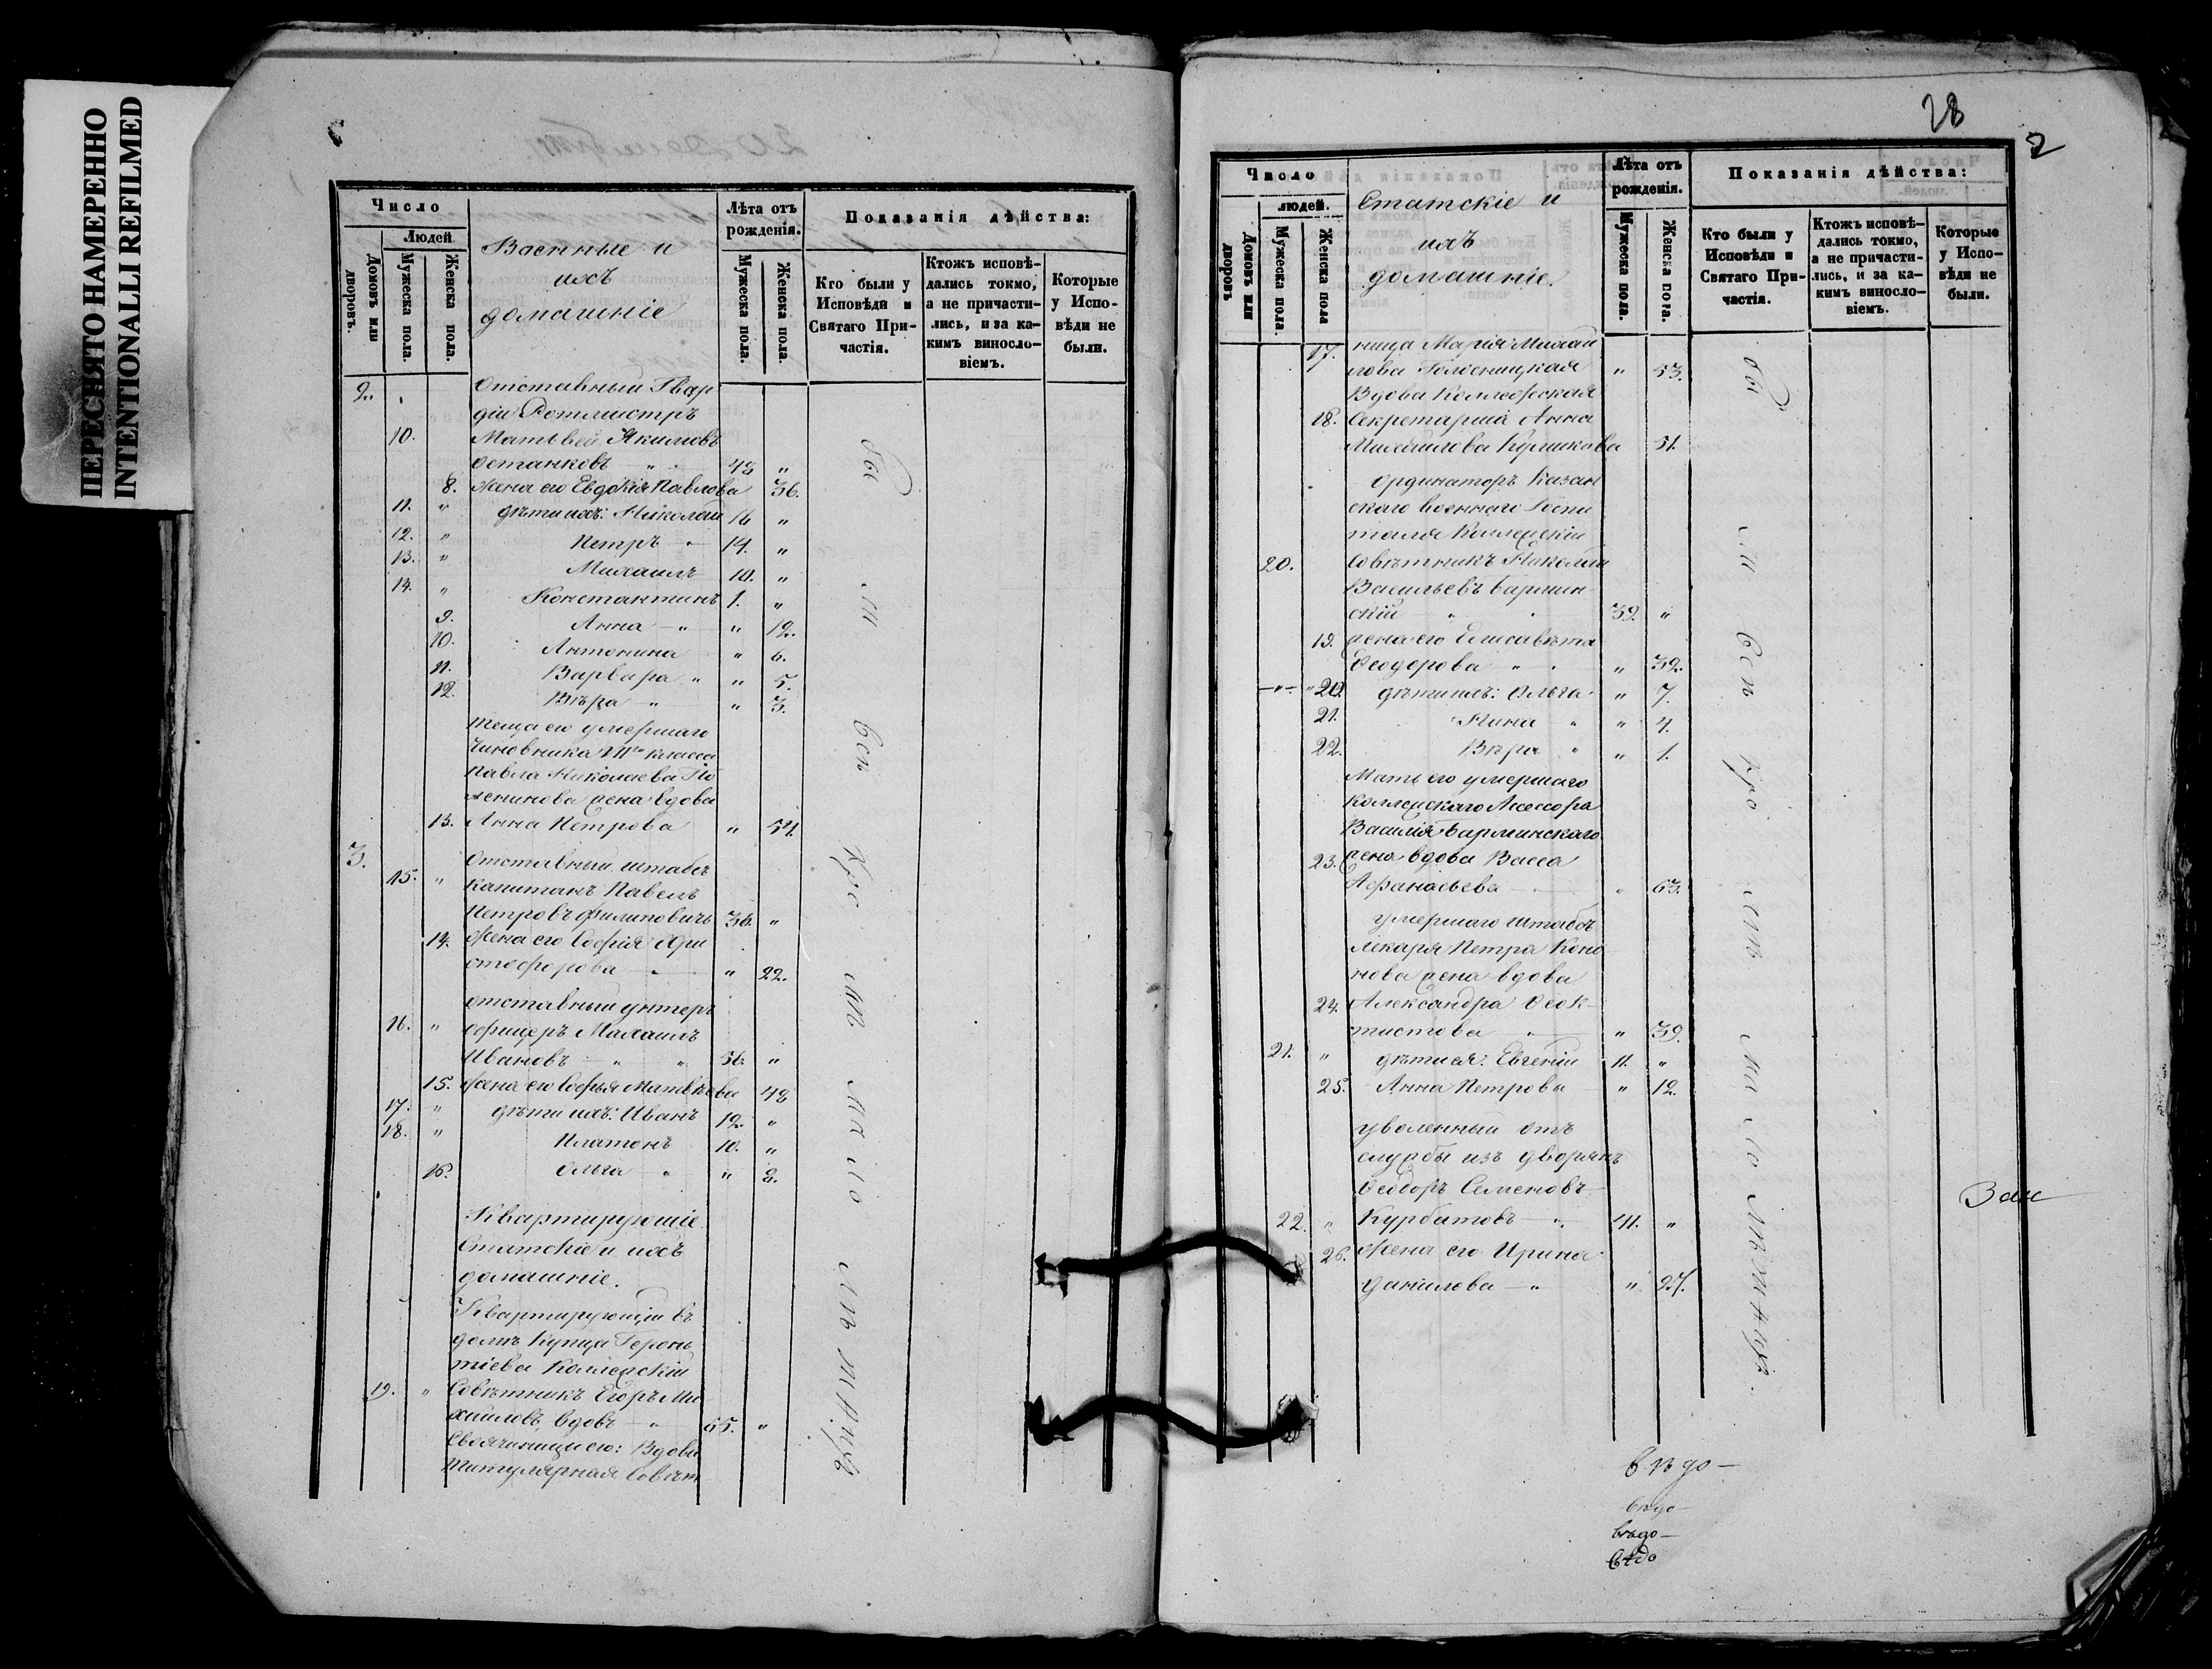 ПЕРЕСНЯТО НАМЕРЕННО
INTENTIONALLI REFILMED
Число
Людей
Домовъ или дворовъ.
Мужеска пола.
Женска пола.
Военные и
ихъ
домашніе
Лѣта отъ рожденія.
Мужеска пола.
Женска пола.
Показанія дѣйства:
Кто были у Исповѣди и Святаго Причастія.
Ктожъ исповѣдались токмо, а не причастились, и за какимъ винословіемъ.
Которые у Исповѣди не были.
2. Отставный Гвар
діи Ротмистръ
10. Матвей Якимовъ
Останковъ 48 "
8. Жена его Евдокія Павлова 36.
11. " Дѣти ихъ: Николай 16 "
12. " Петръ 14. "
13. " Михаилъ 10. "
14. " Константинъ 1. "
9. Анна " " 12.
10. Антонина " 6.
11. Варвара " " 5.
12. Вѣра " " 3.
Теща его умершаго
Чиновника класса
Павла Николаева
жена вдова
13. Анна Петрова " 54.
3. Отставный штабсъ
15. " Капитанъ Павелъ
Петровъ Филиповичъ 36. "
14. Жена его Софія Хри
стофорова " 22.
Отставный унтеръ
16. " офицеръ Михаилъ
Ивановъ " " 56. "
15. Жена его Софья Матвѣева 48
17. " Дѣти ихъ: Иванъ 12. "
18. " Платонъ 10. "
16. Ольга " " 8.
Квартирующіе
Статскіе и ихъ
домашніе.
Квартирующій въ
домѣ Купца Геронь
тіева Коллежскій
19. " Совѣтникъ Егоръ Ми
хайловъ, вдовъ " 65. "
Своячиница его: Вдова
Титулярная Совѣт
28
2
Число
людей.
Домовъ или дворовъ
Мужеска пола.
Женска пола
Статскіе и
ихъ
домашніе.
Лѣта отъ рожденія.
Мужеска пола.
Женска пола.
Показанія дѣйства:
Кто были у Исповѣди и Святаго Причастія.
Ктожъ исповѣдались токмо, а не причастились, и за какимъ винословіемъ.
Которые у Исповѣди не были.
17. ница Марія Михай
лова " 53.
Вдова Коллежская
18. Секретарша Анна
Михайлова Куликова 51.
Ординаторъ Казан
скаго военнаго Госпи
таля Коллежскій
20. Совѣтникъ Николай
Васильевъ Бармин
скій " 39. "
19. Жена его Елисавета
Ѳеодорова " " 32.
" " 20. Дѣти ихъ: Ольга " 7.
21. Нина " " 4.
22. Вѣра " " 1.
Мать его умершаго
Коллежскаго Ассесора
Василія Барминскаго
23. жена вдова Васса
Афанасьева " 63.
Умершаго Штабъ
лекаря Петра Коно
нова жена вдова
24. Александра Ѳеок-
тистова " " 39.
21. " Дѣти ея: Евгеній 11. "
25. Анна Петрова " 12.
Уволенный отъ
службы изъ дворянъ
Ѳеодоръ Семеновъ
22. " Курбатовъ " 41. "
26. Жена его Ирина
Данилова " " 27.
Зак
вѣдо-
вѣдо-
вѣдо-
вѣдо